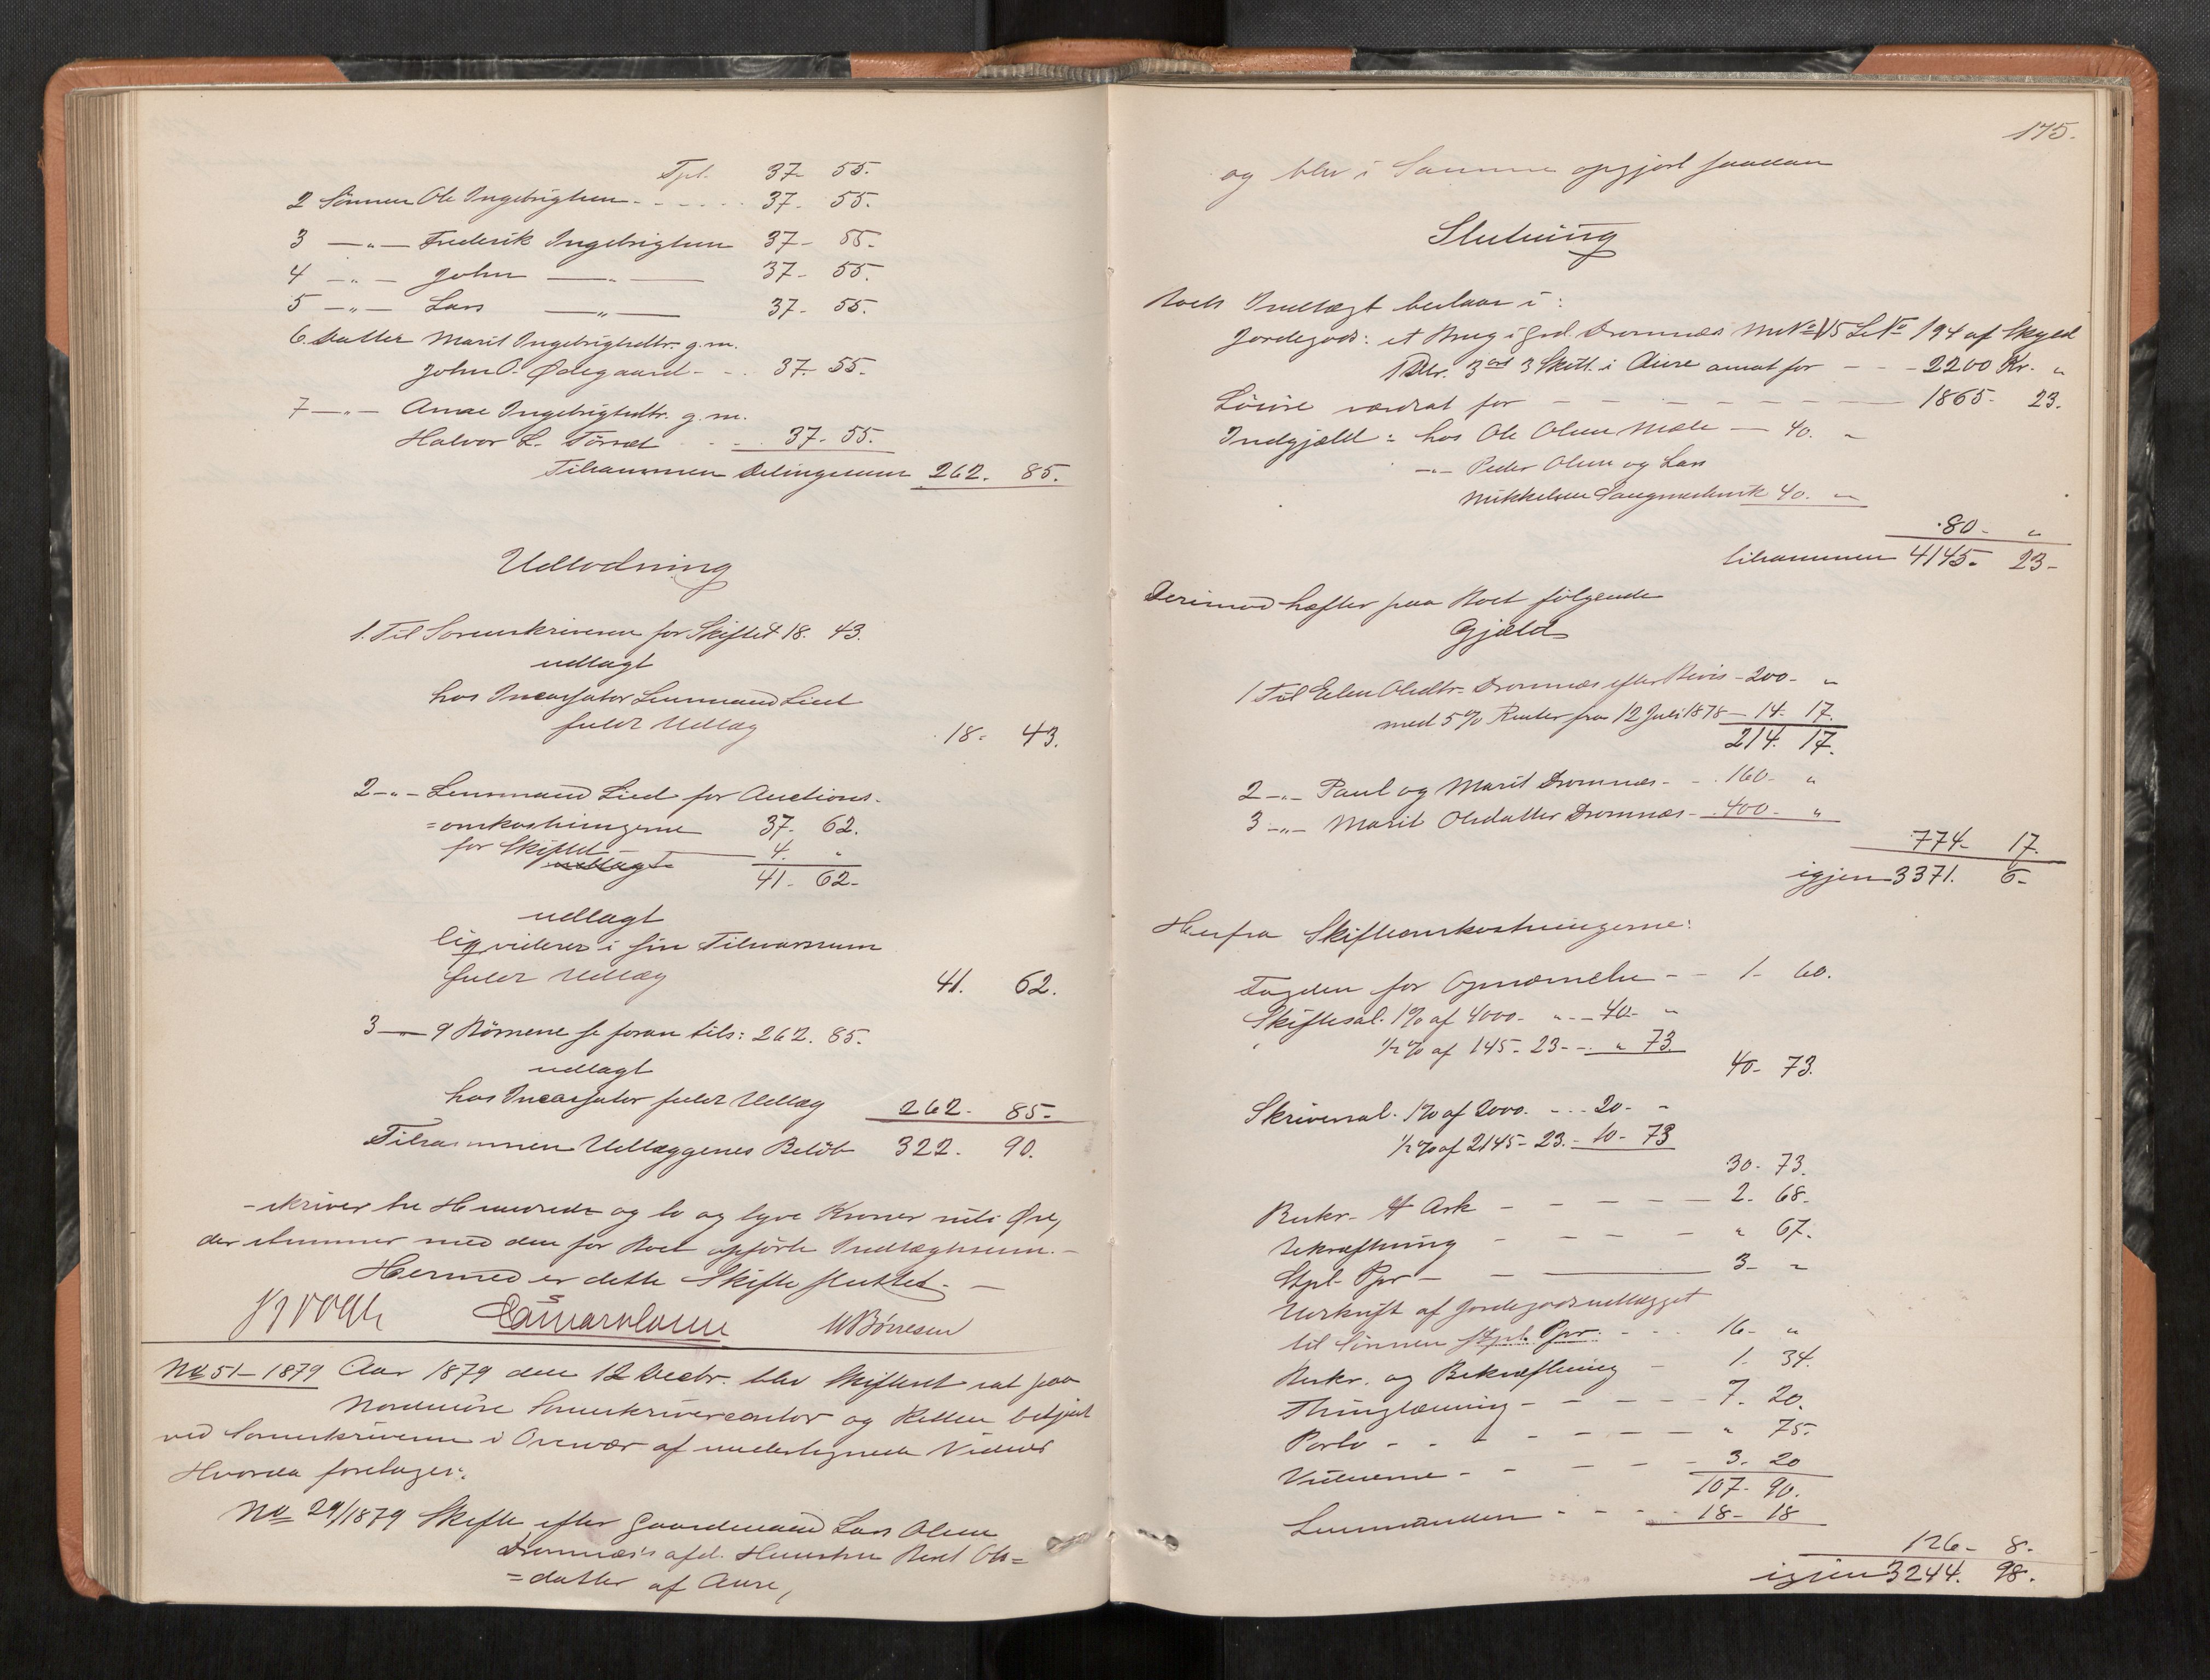 Tpt. 37 55.
2 Sønnen Ole Ingebrigtsen - - - - - 37. 55.
3 —„— Frederik Ingebrigtsen 37- 55-
4 -„- John —„— 37- 55.
5 -„- Lars —„— 37- 55.
6. Datter Marit Ingebrigtsdtr. g.m.
John O. Ødegaard - - . 37- 55.
7 -„- Anne Ingebrigtsdtr. g.m.
Halvor L. - - . 37- 55.
Tilsammen Delingssum 262. 85.
Udlodning
1. Til Sorenskriveren for Skiftet 18. 43.
udlagt
hos Incassator Lensmand Lied
fuldt Udlæg 18- 43.
2-„- Lensmand Lied for Auctions-
=omkostningerne 37- 62.
for Skiftet — 4. „
udlagt 41- 62-
udlagt
liqviderer i sin Tilsvarssum
fuldt Udlæg 41. 62.
3 -„- 9 Børnene se foran tils: 262. 85.
udlagt
hos Incassator fuldt Udlæg 262- 85-
Tilsammen Udlæggenes Beløb 322. 90.
-skriver tre Hundrede og to og tyve Kroner niti Øre,
der stemmer med den for Boet opførte Indtægtssum. -
Hermed er dette Skifte sluttet. -
W Børresen
No 51- 1879 Aar 1879 den 12 Decbr. blev Skifteret sat paa
Nordmøre Sorenskrivercontor og Retten betjent
ved Sorenskriveren i Overvær af undertegnede Vidner
Hvorda foretages:
No 29/1879 Skifte efter Gaardmand Lars Olsen
Dromnæs's afd. Hustru Beret Ols=
=datter af Aure,
175.
og blev i Samme opgjort saadan
Slutning
Boets Indtægt bestaar i:
Jordegods: et Brug i Grd. Dromnæs MNo 15 LNo 194 af Skyld
1 Dlr. 3 ort 3 Skill. i Aure antat for - - - 2200 Kr. „
Løsøre værdsat for - - - - - - - 1865- 23.
Indgjæld: hos Ole Olsen Mæle - 40. „
-„- Peder Olsen og Lars
Mikkelsen 40. „
80- „
tilsammen 4145- 23-
Derimod hæfter paa Boet følgende
Gjæld
1 Til Olsdtr. Dromnæs efter Bevis - 200- „
med 5% Renter fra 12 Juli 1878 - 14- 17.
214. 17.
2-„- Paul og Marit Dromnæs - - . 160- „
3-„- Marit Olsdatter Dromnæs - 400- „
774- 17.
igjen 3371. 6-
Herfra Skifteomkostningerne:
Fogden for Opnævnelse - - 1- 60.
Skiftesal. 1% af 4000- „ - - 40- „
½% af 145- 23- - „ 73
40- 73.
Skriversal. 1% af 2000. - . . 20- „
½% af 2145- 23. - 10- 73
30- 73.
Beskr. 4 Ark - - - - - 2. 68-
Bekræftning - - - - „ 67.
Stpl. Ppr - - 3- „
Udskrift af Jordegodsudlægget
til Sønnen Stpl. Ppr. - - . 16- „
Beskr. og Bekræftning - 1. 34.
Thinglæsning - - - - - 7. 20.
Porto - - - - - - - „ 75-
Vidnerne - - - - - 3. 20
107. 90.
Lensmanden - - - - 18- 18
126- 8-
igjen 3244. 98.